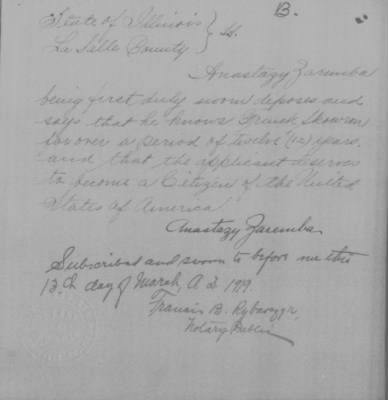 B.
State of Illinois } SS.
La Salle County
Anastazy Zaremba
being first duly sworn deposes and
says that he knows Frank Skowron
for over a period of twelve (12) years.
and that the applicant deserves
to become a Citizen of the United
States of America.
Anastazy Zaremba
Subscribed and sworn to before me this
13th day of March, A D 1919.
Francis B.
Notary Public